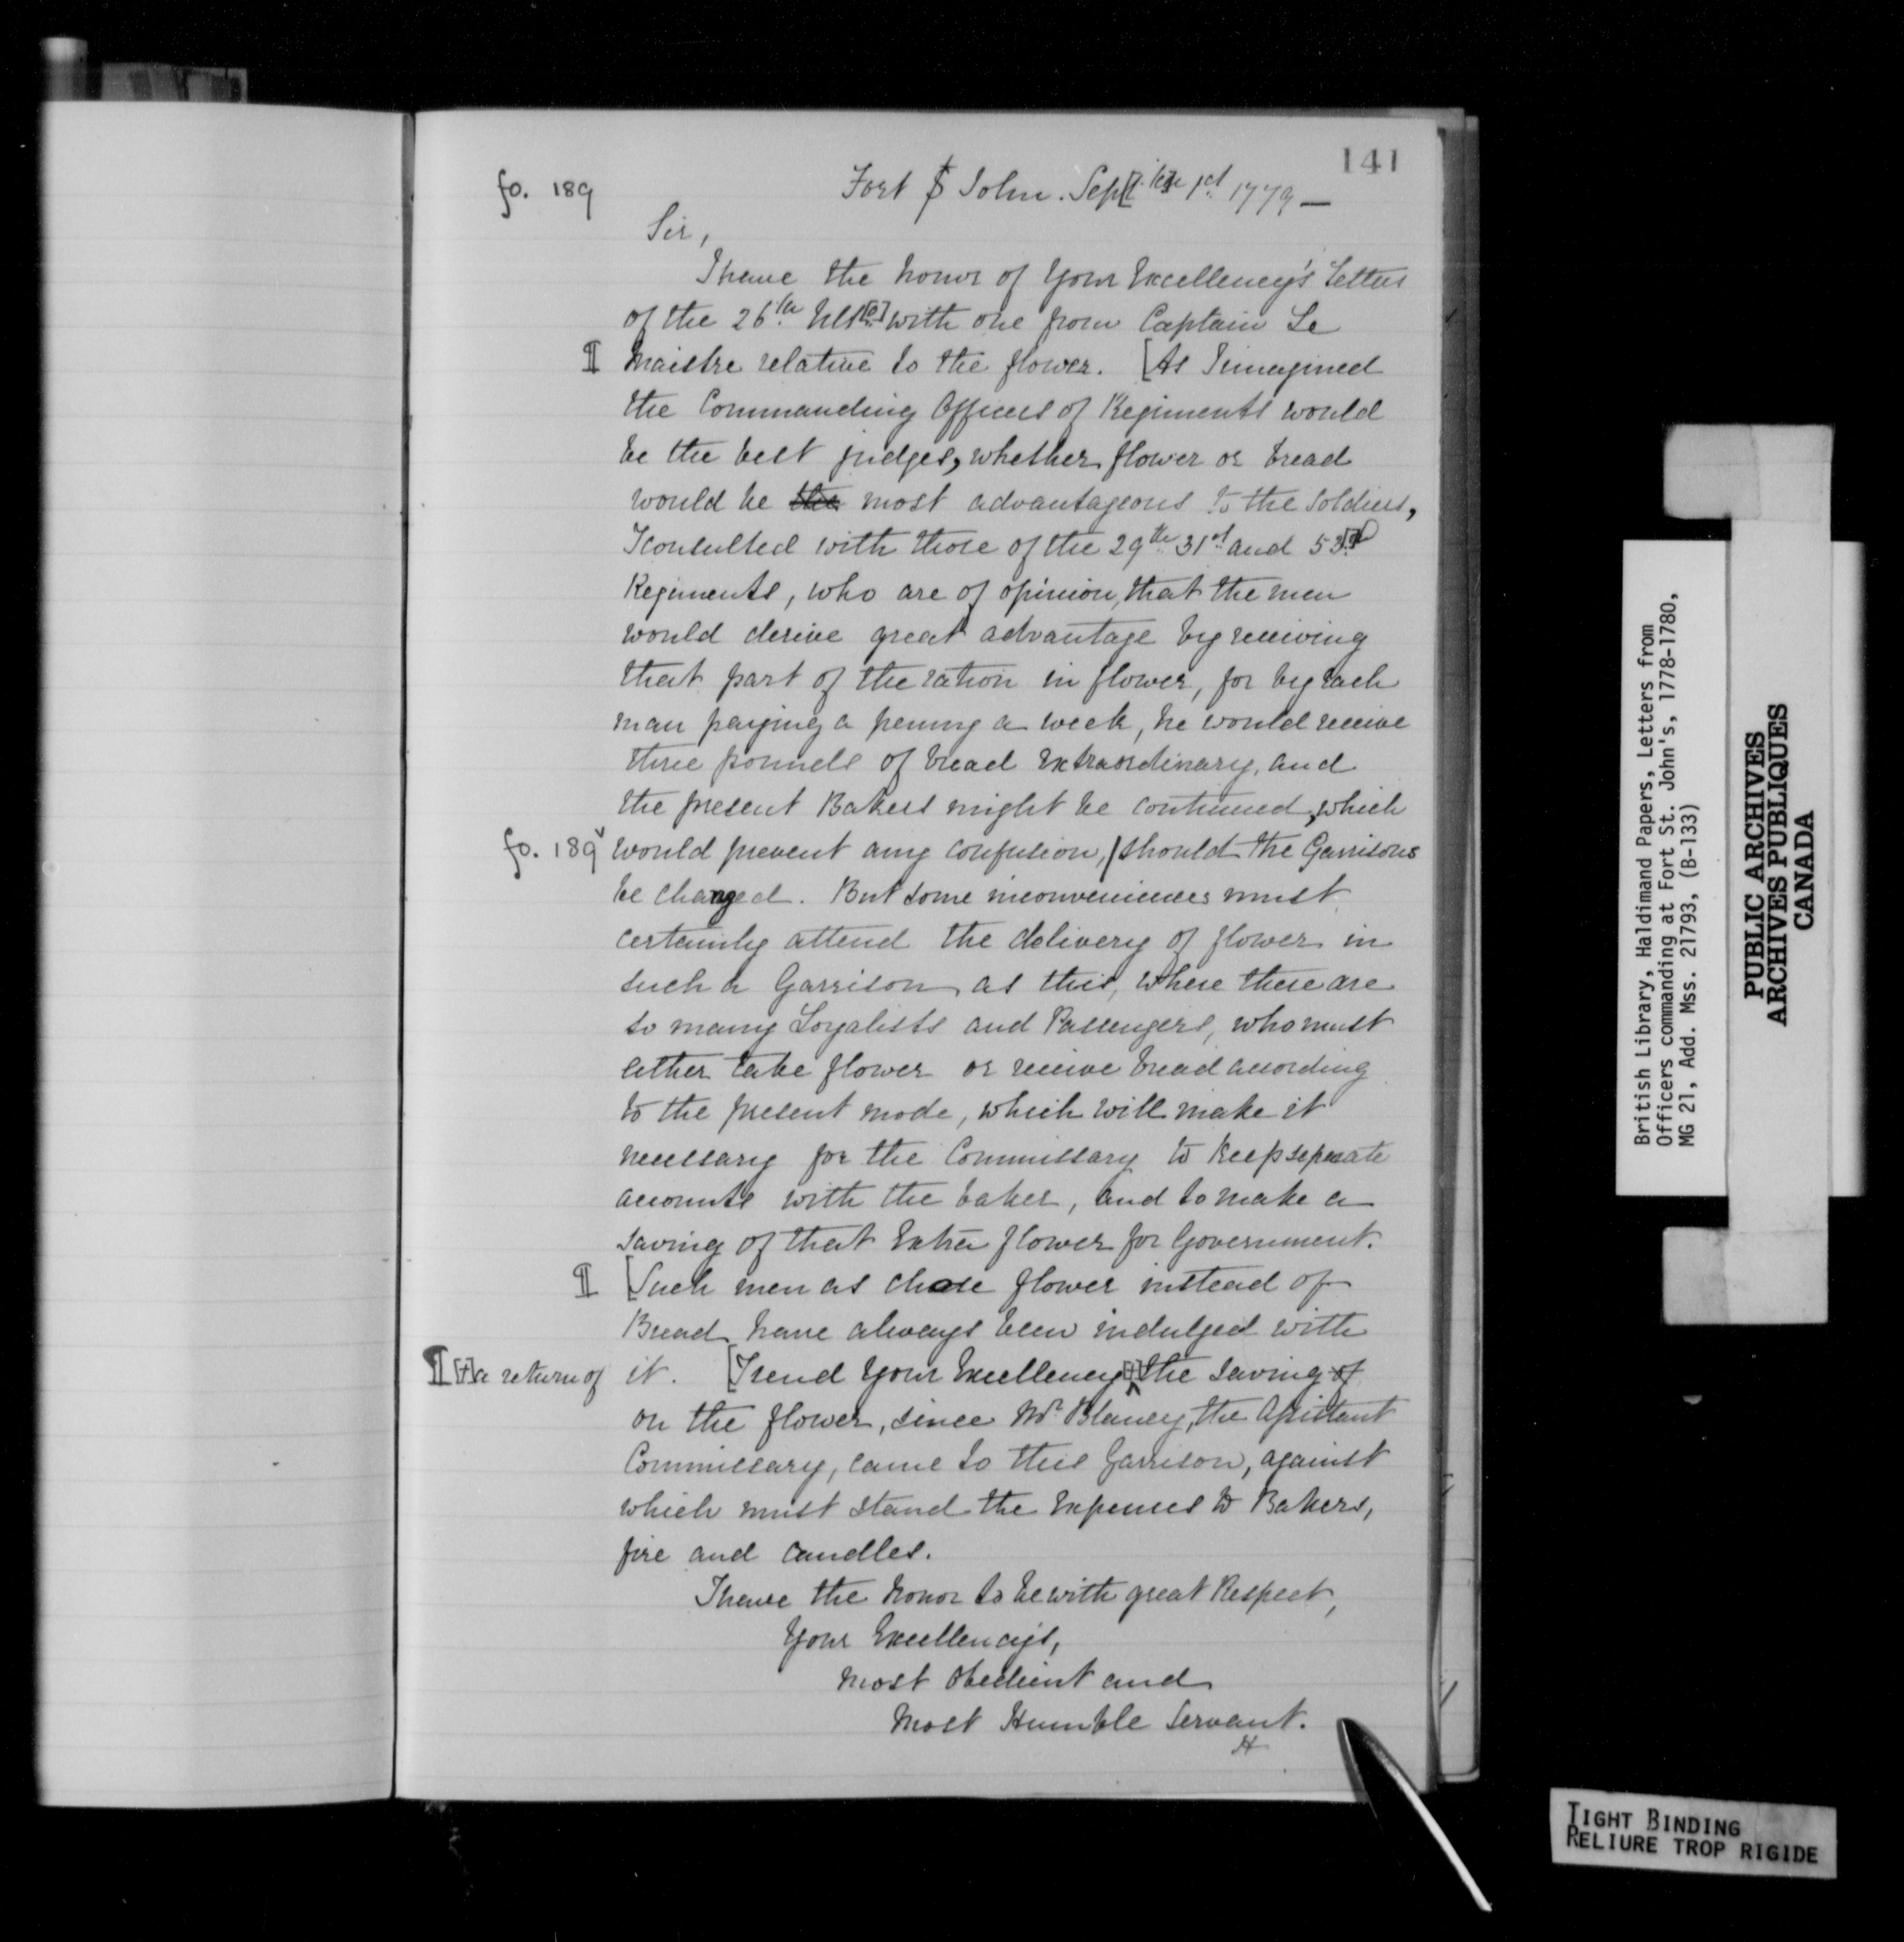 141
fo. 189
Fort St John. Sept[embe]r 1st 1779 —
Sir,
I have the honor of Your Excellency's Letters
of the 26th Ult[o] with one from Captain Le
¶ Maistre relative to the flower. [As I imagined
the Commanding Officers of Regiments would
be the best judges, whether flower or bread
would be the most advantageous to the Soldiers,
I consulted with those of the 29th 31st and 53[r]d
Regiments, who are of opinion, that the men
would derive great advantage by receiving
that part of the ration in flower, for by each
man paying a penny a week, he would receive
three pounds of bread Extraordinary, and
the present Bakers might be continued, which
fo. 189v would prevent any confusion, / should the Garrisons
be changed. But some inconveniences must
certainly attend the delivery of flower in
such a Garrison as this, where there are
so many Loyalists and Passengers, who must
either take flower or receive bread according
to the present mode, which will make it
necessary for the Commissary to keep seperate
accounts with the baker, and to make a
saving of that Extra flower for Government.
¶ [Such men as chose flower instead of
Bread have always been indulged with
¶ [+] a return of it. [I send Your Excellency [+] the saving of
on the flower, since Mr Blaney, the Assistant
Commissary, came to this Garrison, against
which must stand the Expenses to Bakers,
fire and candles.
I have the honor to be with great Respect,
Your Excellency's,
Most Obedient and
Most Humble Servant.
H
British Library, Haldimand Papers, Letters from
Officers commanding at Fort St. John's, 1778-1780,
MG 21, Add. Mss. 21793, (B-133)
PUBLIC ARCHIVES
ARCHIVES PUBLIQUES
CANADA
TIGHT BINDING
RELIURE TROP RIGIDE